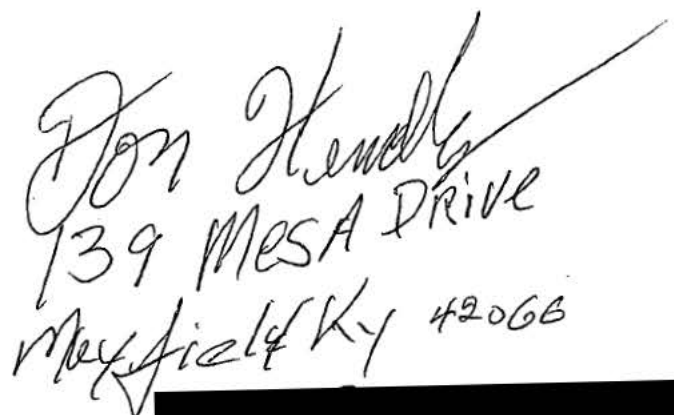 Don
139 Mesa Drive
Mayfield Ky 42066